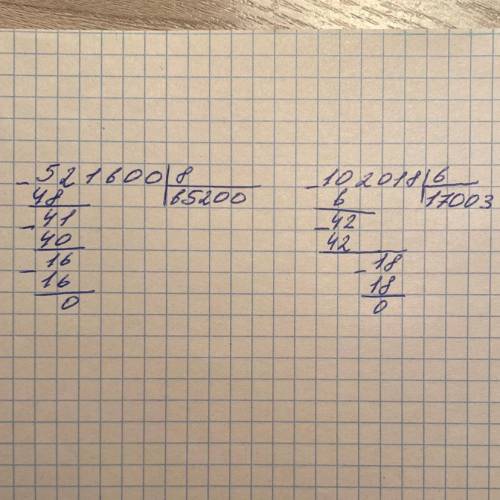 - 521600 | 8
48 | 65200
- 41
40
- 16
16
0
- 102018 | 6
6 | 17003
- 42
42
- 18
18
0